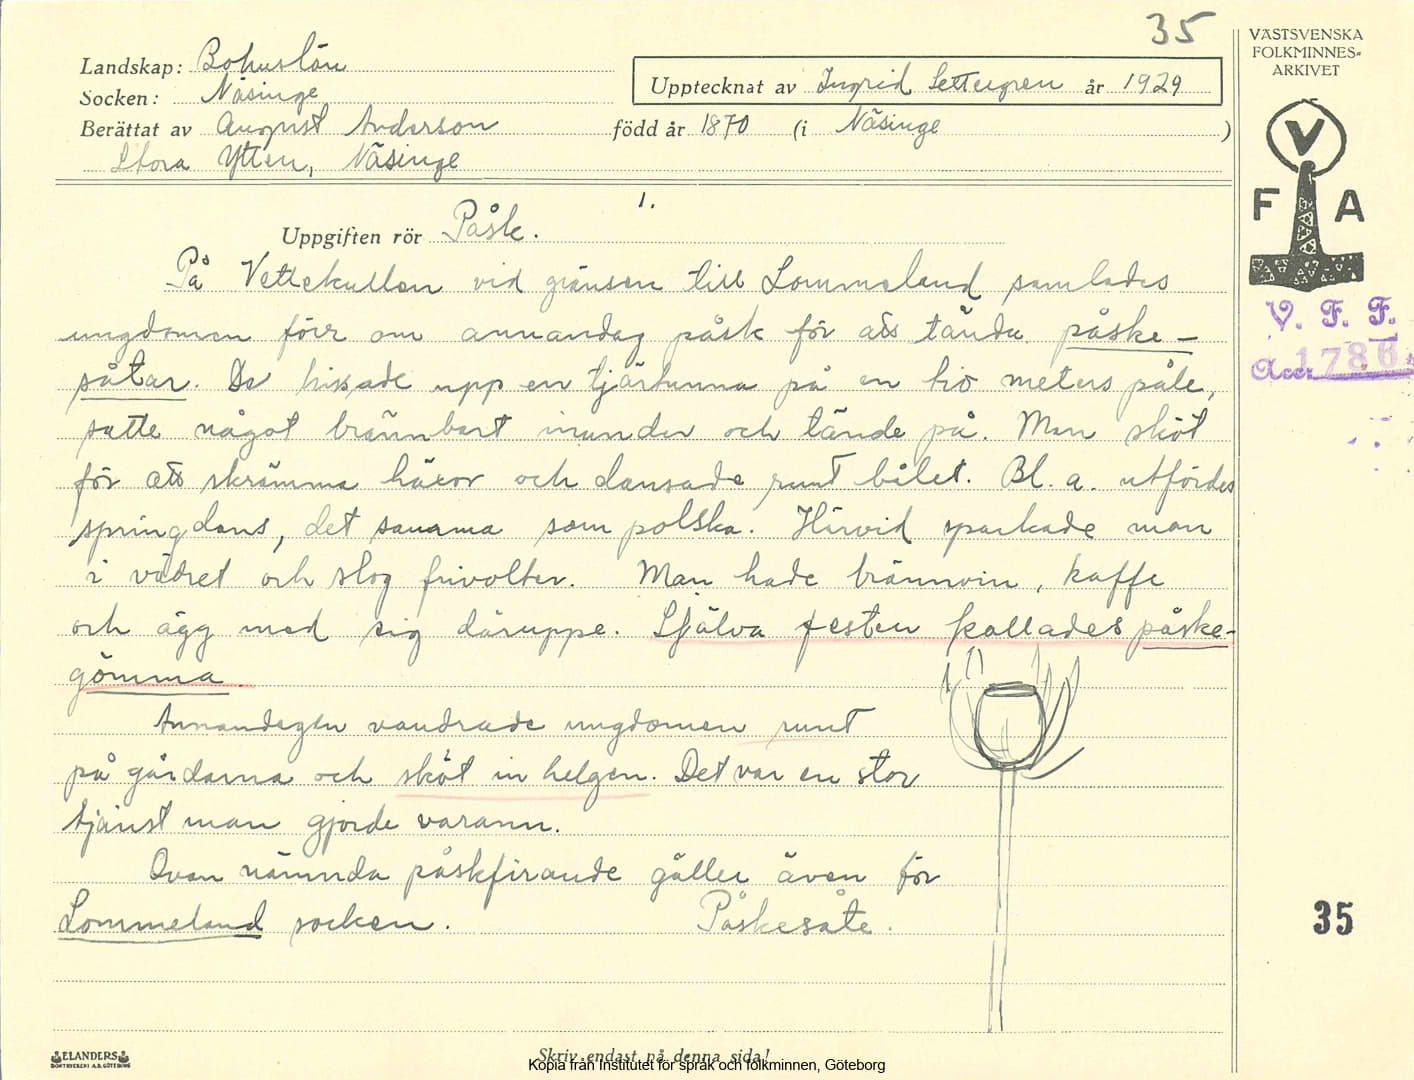 35
VÄSTSVENSKA
FOLKMINNES-
ARKIVET
Landskap: Bohuslän
Socken: Näsinge
Upptecknat av Ingrid Settergren år 1929
Berättat av August Anderson född år 1870 (i Näsinge )
Stora Ytten, Näsinge
V
F A
1.
Uppgiften rör Påsk.
På Vettekullen vid gränsen till Lommeland samlades
ungdomen förr om annandag påsk för att tända påske-
såtar. De hissade upp en tjärtunna på en tio meters påle,
satte något brännbart inunder och tände på. Man sköt
för att skrämma häxor och dansade runt bålet. Bl. a. utfördes
springdans, det samma som polska. Härvid sparkade man
i vädret och slog frivolter. Man hade brännvin, kaffe
och ägg med sig däruppe. Själva festen kallades påske-
gömma.
Annandagen vandrade ungdomen runt
på gårdarna och sköt in helgen. Det var en stor
tjänst man gjorde varann.
Ovan nämnda påskfirande gäller även för
Lommeland socken. Påskesåte.
V. F. F.
Acc. 1786
35
ELANDERS
BOKTRYCKERI A.B. GÖTEBORG
Skriv endast på denna sida!
Kopia från Institutet för språk och folkminnen, Göteborg